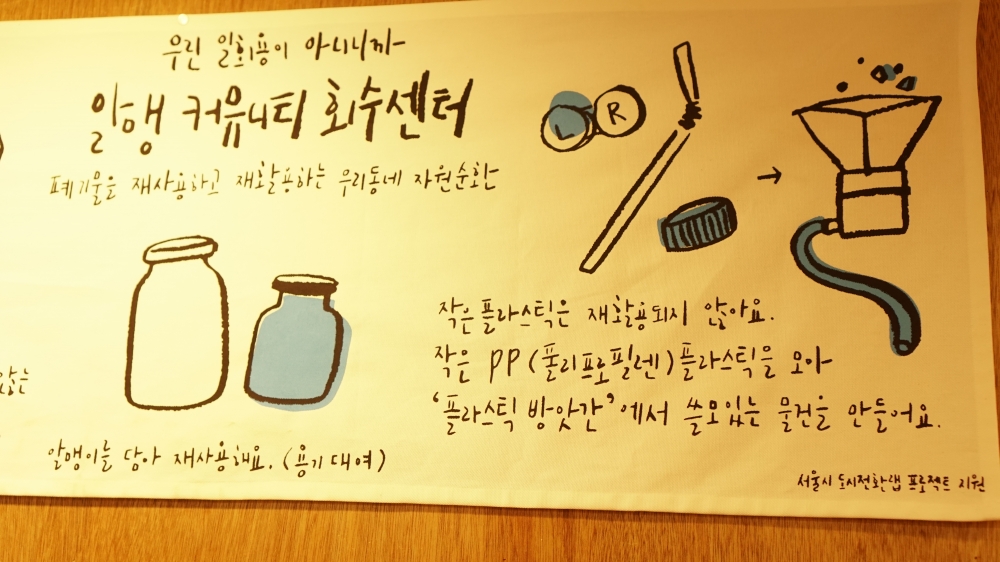 우린 일회용이 아니니까
알맹 커뮤니티 회수센터
폐기물을 재사용하고 재활용하는 우리동네 자원순환
알맹이를 담아 재사용해요. (용기 대여)
L R
작은 플라스틱은 재활용되지 않아요.
작은 PP (폴리프로필렌) 플라스틱을 모아
'플라스틱 방앗간'에서 쓸모있는 물건을 만들어요.
서울시 도시전환랩 프로젝트 지원